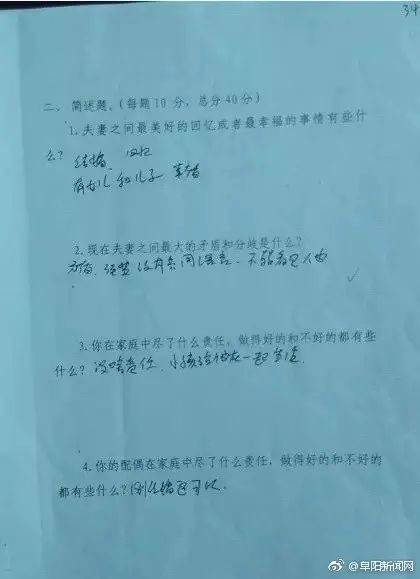 34
二、简述题。(每题10分,总分40分)
1.夫妻之间最美好的回忆或者最幸福的事情有些什
么?结婚
有女儿和儿子
2.现在夫妻之间最大的矛盾和分歧是什么?
没有共同语言
3.你在家庭中尽了什么责任,做得好的和不好的都有些
什么?没啥责任 小孩 他 在一起
4.你的配偶在家庭中尽了什么责任,做得好的和不好的
都有些什么?刚结婚还可以.
@阜阳新闻网